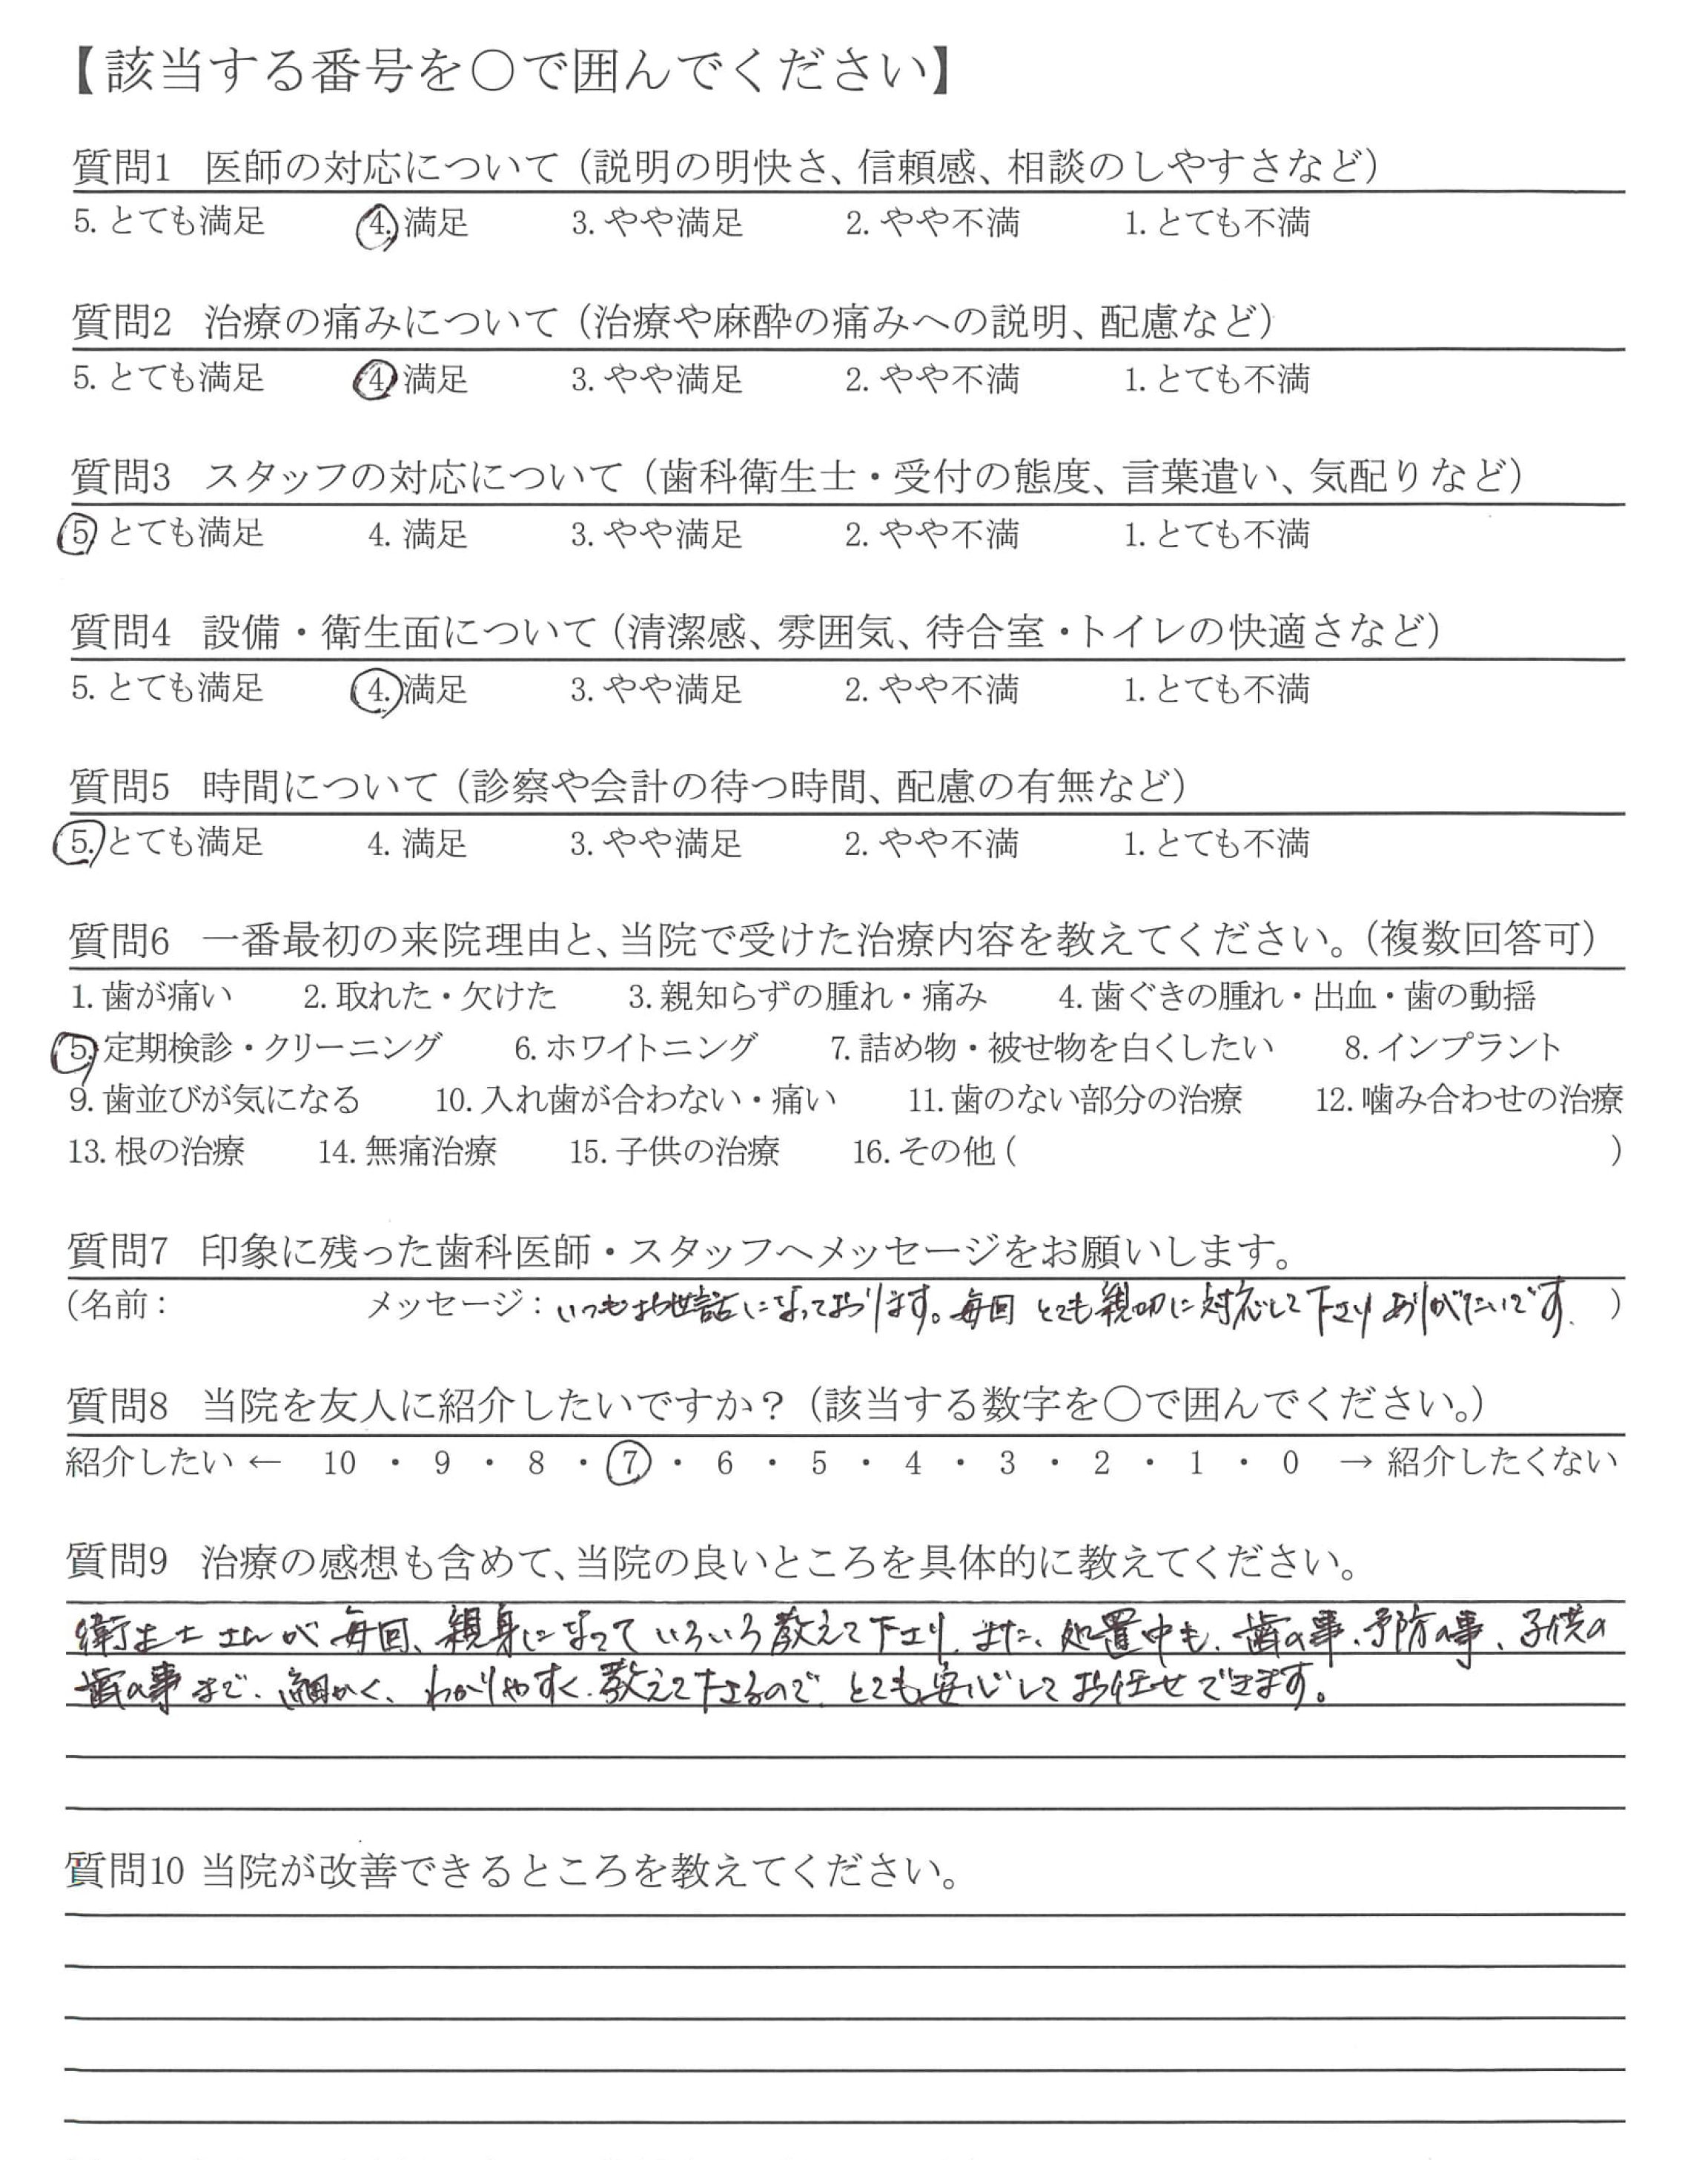 【該当する番号を〇で囲んでください】
質問1 医師の対応について（説明の明快さ、信頼感、相談のしやすさなど）
5. とても満足 4. 満足 3. やや満足 2. やや不満 1. とても不満
質問2 治療の痛みについて（治療や麻酔の痛みへの説明、配慮など）
5. とても満足 4. 満足 3. やや満足 2. やや不満 1. とても不満
質問3 スタッフの対応について（歯科衛生士・受付の態度、言葉遣い、気配りなど）
5. とても満足 4. 満足 3. やや満足 2. やや不満 1. とても不満
質問4 設備・衛生面について（清潔感、雰囲気、待合室・トイレの快適さなど）
5. とても満足 4. 満足 3. やや満足 2. やや不満 1. とても不満
質問5 時間について（診察や会計の待つ時間、配慮の有無など）
5. とても満足 4. 満足 3. やや満足 2. やや不満 1. とても不満
質問6 一番最初の来院理由と、当院で受けた治療内容を教えてください。（複数回答可）
1. 歯が痛い 2. 取れた・欠けた 3. 親知らずの腫れ・痛み 4. 歯ぐきの腫れ・出血・歯の動揺
5. 定期検診・クリーニング 6. ホワイトニング 7. 詰め物・被せ物を白くしたい 8. インプラント
9. 歯並びが気になる 10. 入れ歯が合わない・痛い 11. 歯のない部分の治療 12. 噛み合わせの治療
13. 根の治療 14. 無痛治療 15. 子供の治療 16. その他 ( )
質問7 印象に残った歯科医師・スタッフへメッセージをお願いします。
（名前： メッセージ：いつもお世話になっております。毎回 とても親切に対応して下さり ありがたいです. ）
質問8 当院を友人に紹介したいですか？（該当する数字を〇で囲んでください。）
紹介したい ← 10 ・ 9 ・ 8 ・ 7 ・ 6 ・ 5 ・ 4 ・ 3 ・ 2 ・ 1 ・ 0 → 紹介したくない
質問9 治療の感想も含めて、当院の良いところを具体的に教えてください。
衛生士さんが毎回、親身になっていろいろ教えて下さり、また、処置中も、歯の事、予防の事、子供の
歯の事まで、細かく、わかりやすく、教えて下さるので、とても安心してお任せできます。
質問10 当院が改善できるところを教えてください。